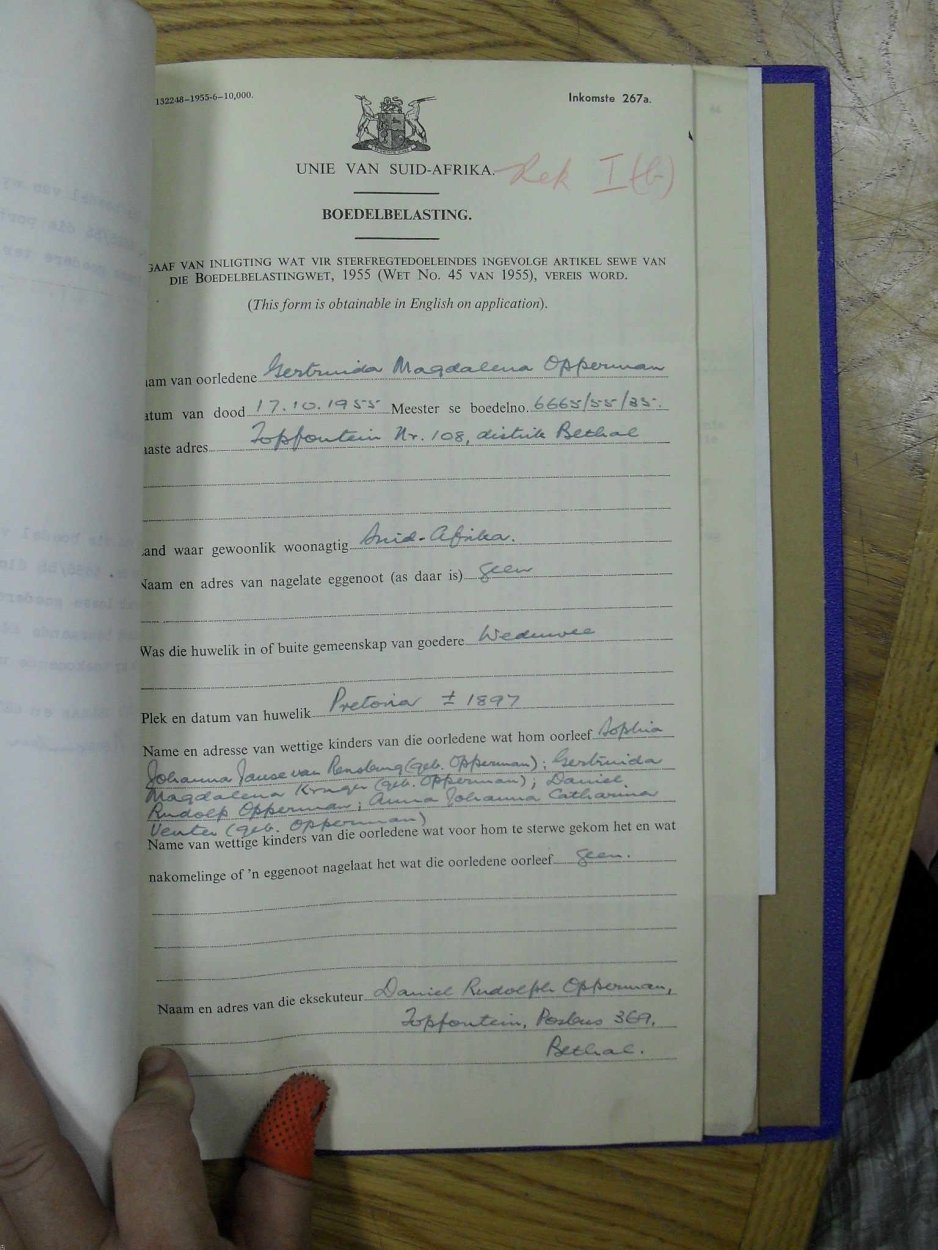 132248–1955-6–10,000.
Inkomste 267a.
UNIE VAN SUID-AFRIKA.
Rek I(b)
BOEDELBELASTING.
GAAF VAN INLIGTING WAT VIR STERFREGTEDOELEINDES INGEVOLGE ARTIKEL SEWE VAN
DIE BOEDELBELASTINGWET, 1955 (WET NO. 45 VAN 1955), VEREIS WORD.
(This form is obtainable in English on application).
am van oorledene Gertruida Magdalena Opperman
atum van dood 17.10.1955 Meester se boedelno. 6665/55/35.
aaste adres Topfontein Nr. 108, distrik Bethal
and waar gewoonlik woonagtig Suid-Afrika.
Naam en adres van nagelate eggenoot (as daar is) geen
Was die huwelik in of buite gemeenskap van goedere Weduwee
Plek en datum van huwelik Pretoria ± 1897
Name en adresse van wettige kinders van die oorledene wat hom oorleef Sophia
Johanna Janse van Rensburg (geb. Opperman); Gertruida
Magdalena Kruger (geb. Opperman); Daniel
Rudolf Opperman; Anna Johanna Catharina
Venter (geb. Opperman)
Name van wettige kinders van die oorledene wat voor hom te sterwe gekom het en wat
nakomelinge of 'n eggenoot nagelaat het wat die oorledene oorleef geen.
Naam en adres van die eksekuteur Daniel Rudolph Opperman,
Topfontein, Posbus 369,
Bethal.